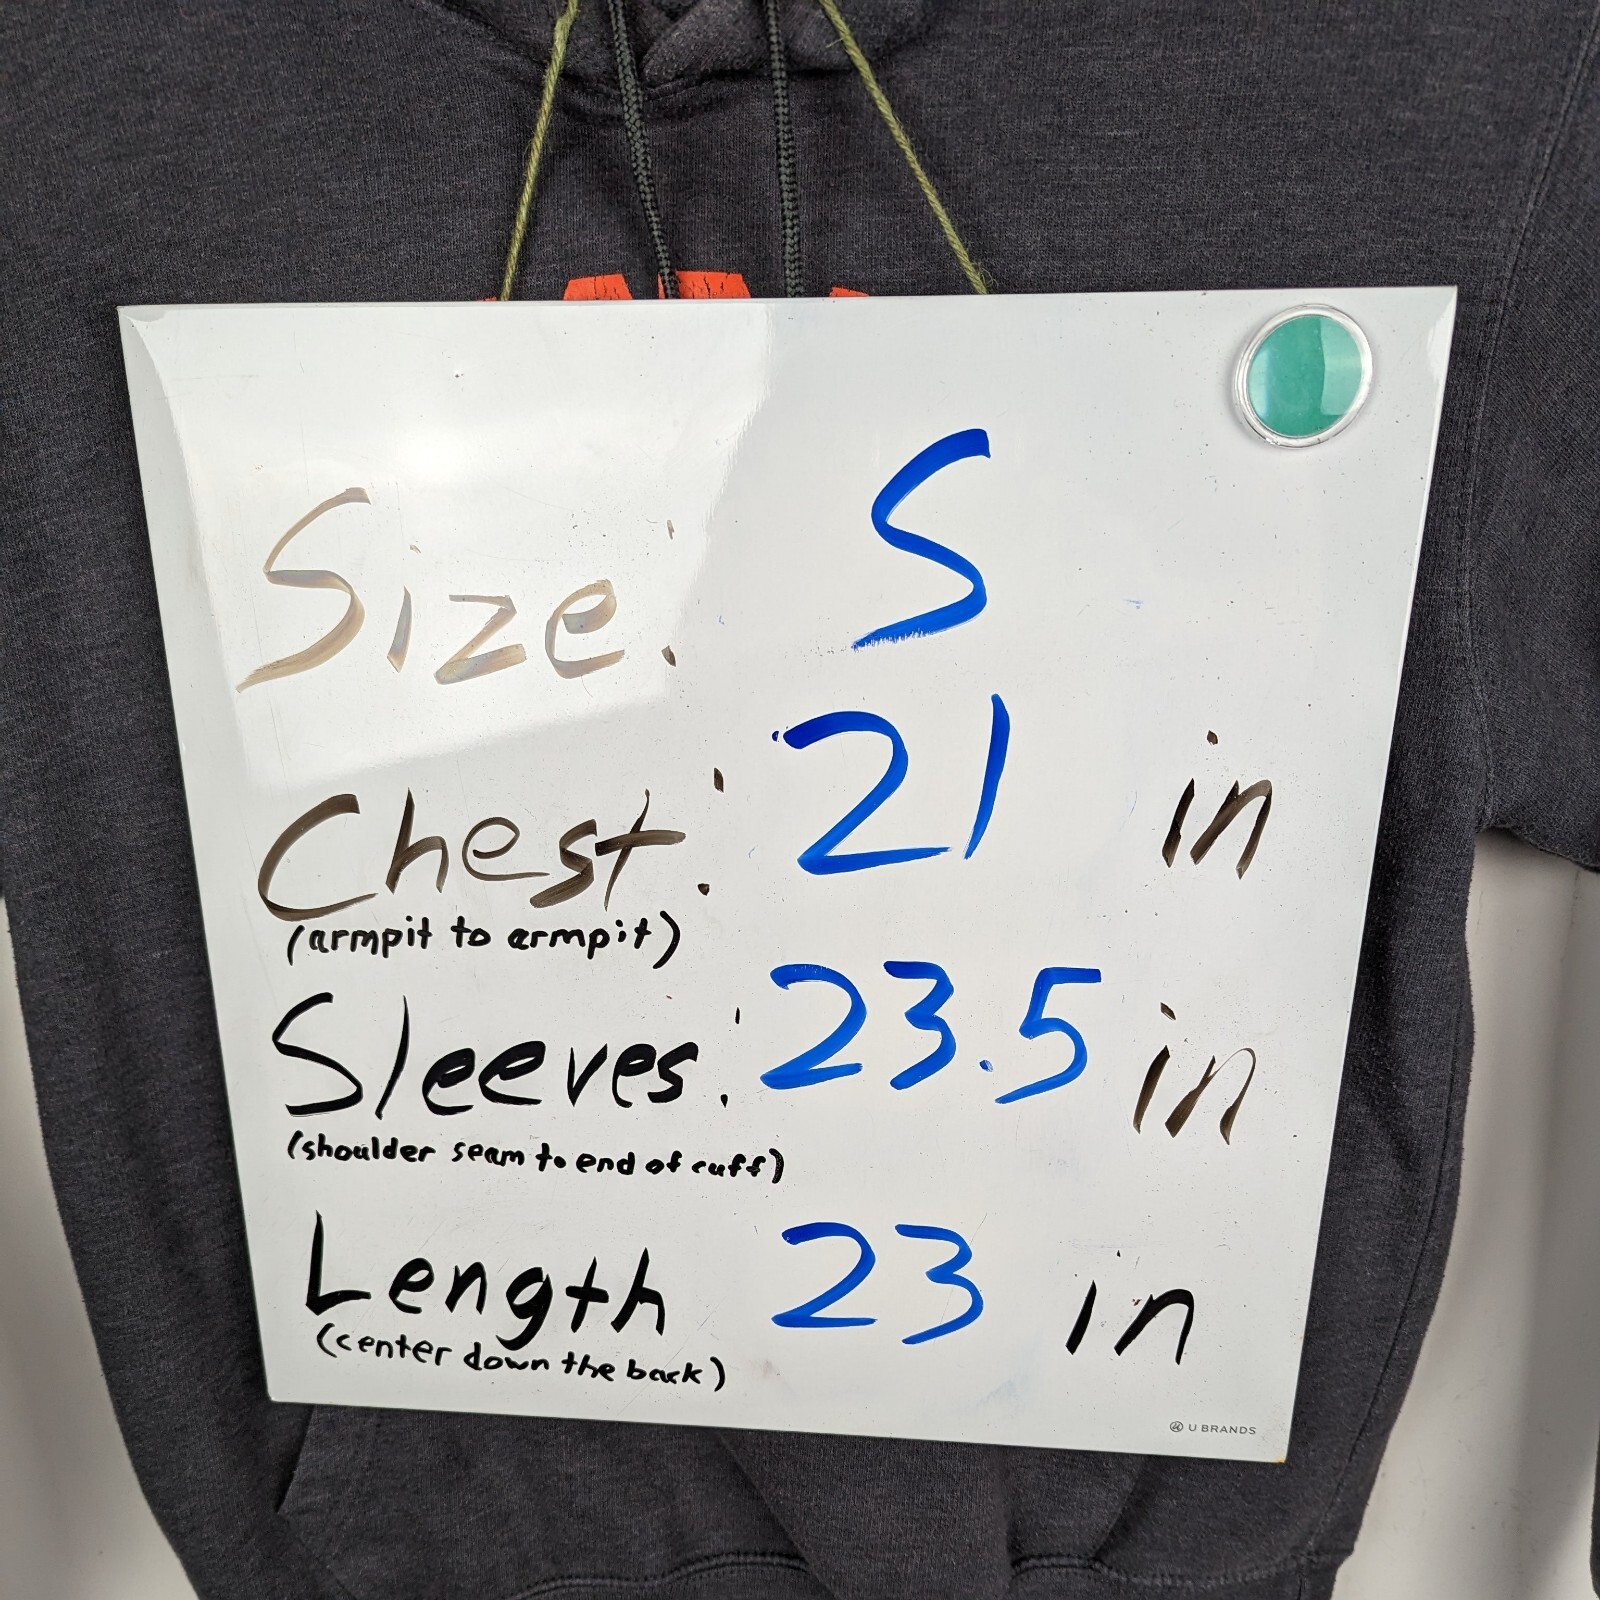 Size: S
Chest: 21 in
(armpit to armpit)
Sleeves: 23.5 in
(shoulder seam to end of cuff)
Length 23 in
(center down the back)
U BRANDS